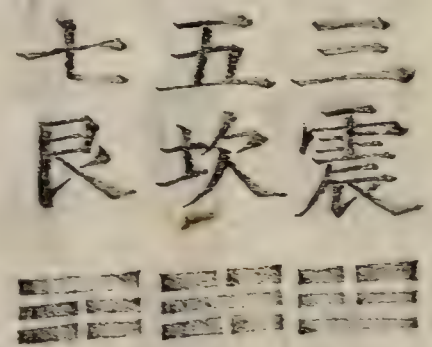 三震
五坎
七艮